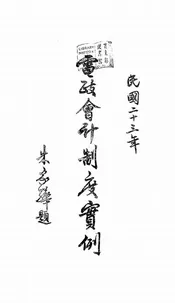 民國二十三年
電政會計制度實例
朱家驊題